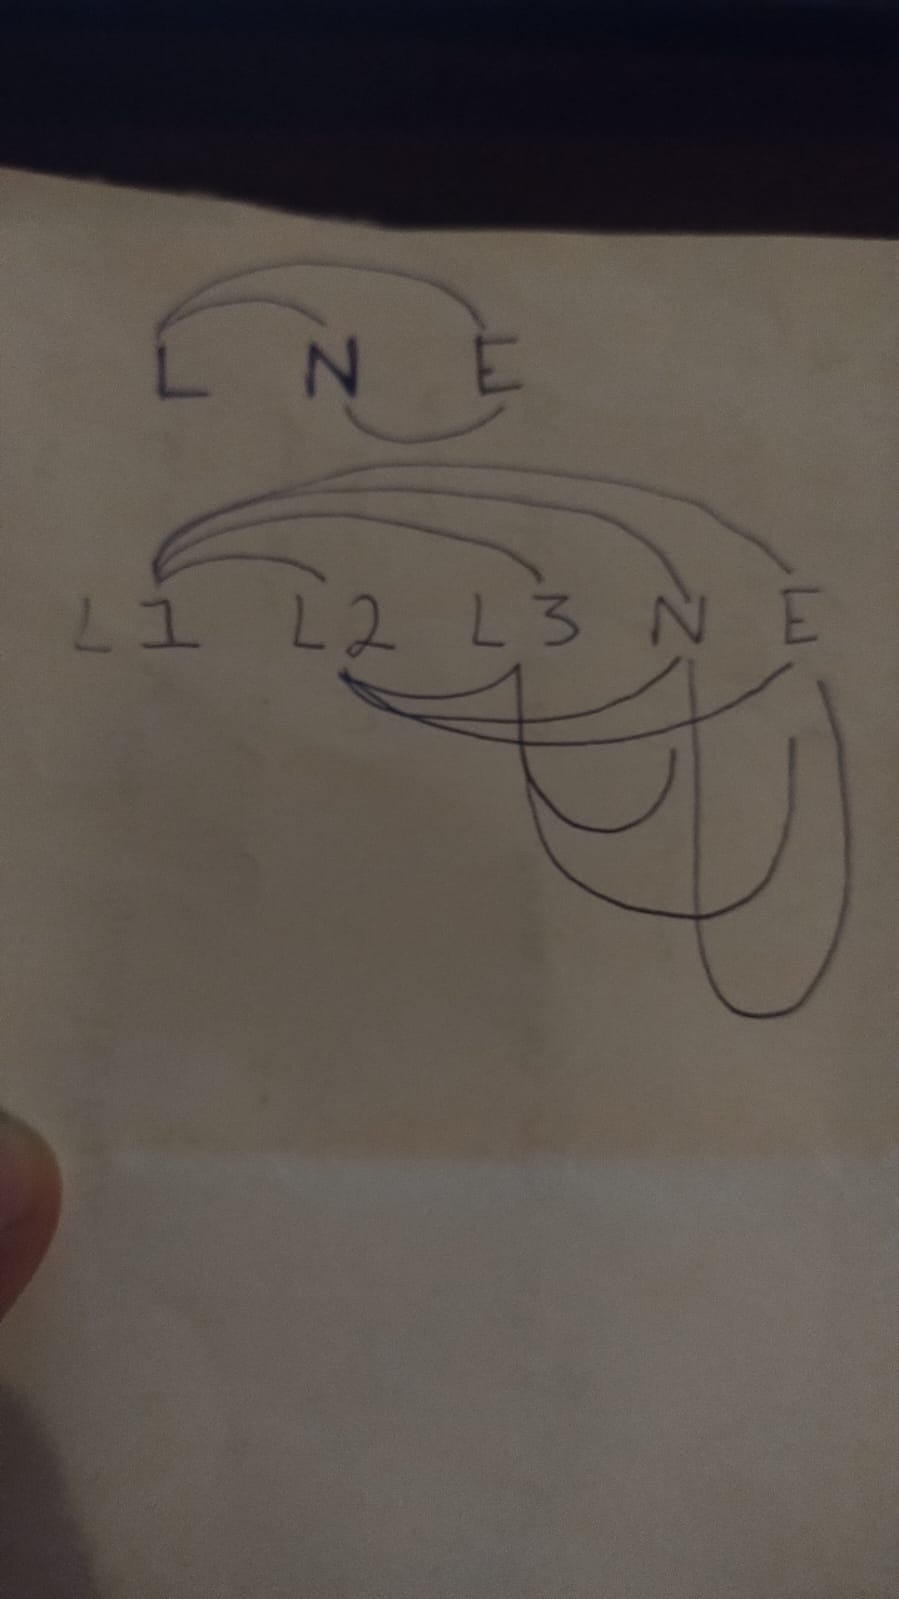 L N E
L1 L2 L3 N E